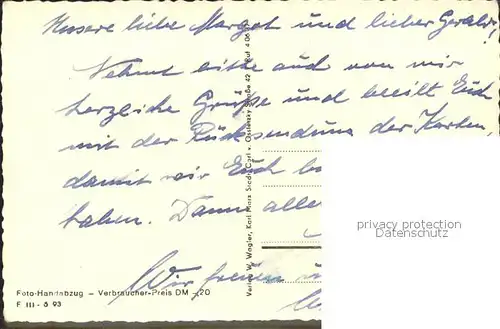 Unsere liebe Margot und lieber Gerald!
Nehmt bitte auch von mir
herzliche Grüße und beeilt Euch
mit der Rücksendung der Karten,
damit wir Euch
haben. Dann alle
Wir freuen
Foto-Handabzug – Verbraucher-Preis DM -,20
F III - 5 93
Verlag W. Wagler, Karl Marx Stadt, Carl v. Ossietzky Straße 42
privacy protection
Datenschutz